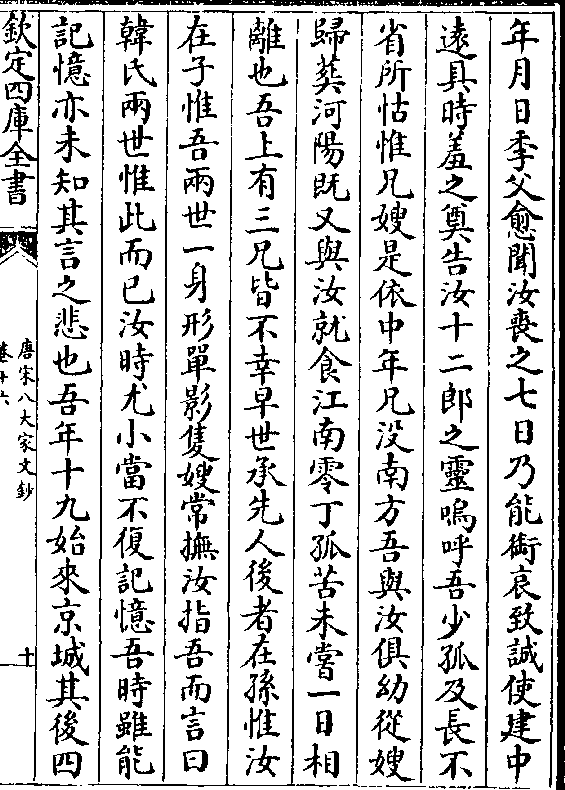 年月日季父愈聞汝喪之七日乃能銜哀致誠使建中
遠具時羞之奠告汝十二郎之靈嗚呼吾少孤及長不
省所怙惟兄嫂是依中年兄沒南方吾與汝俱幼從嫂
歸葬河陽既又與汝就食江南零丁孤苦未嘗一日相
離也吾上有三兄皆不幸早世承先人後者在孫惟汝
在子惟吾兩世一身形單影隻嫂常撫汝指吾而言曰
韓氏兩世惟此而已汝時尤小當不復記憶吾時雖能
記憶亦未知其言之悲也吾年十九始來京城其後四
欽定四庫全書
唐宋八大家文鈔
卷十六
十